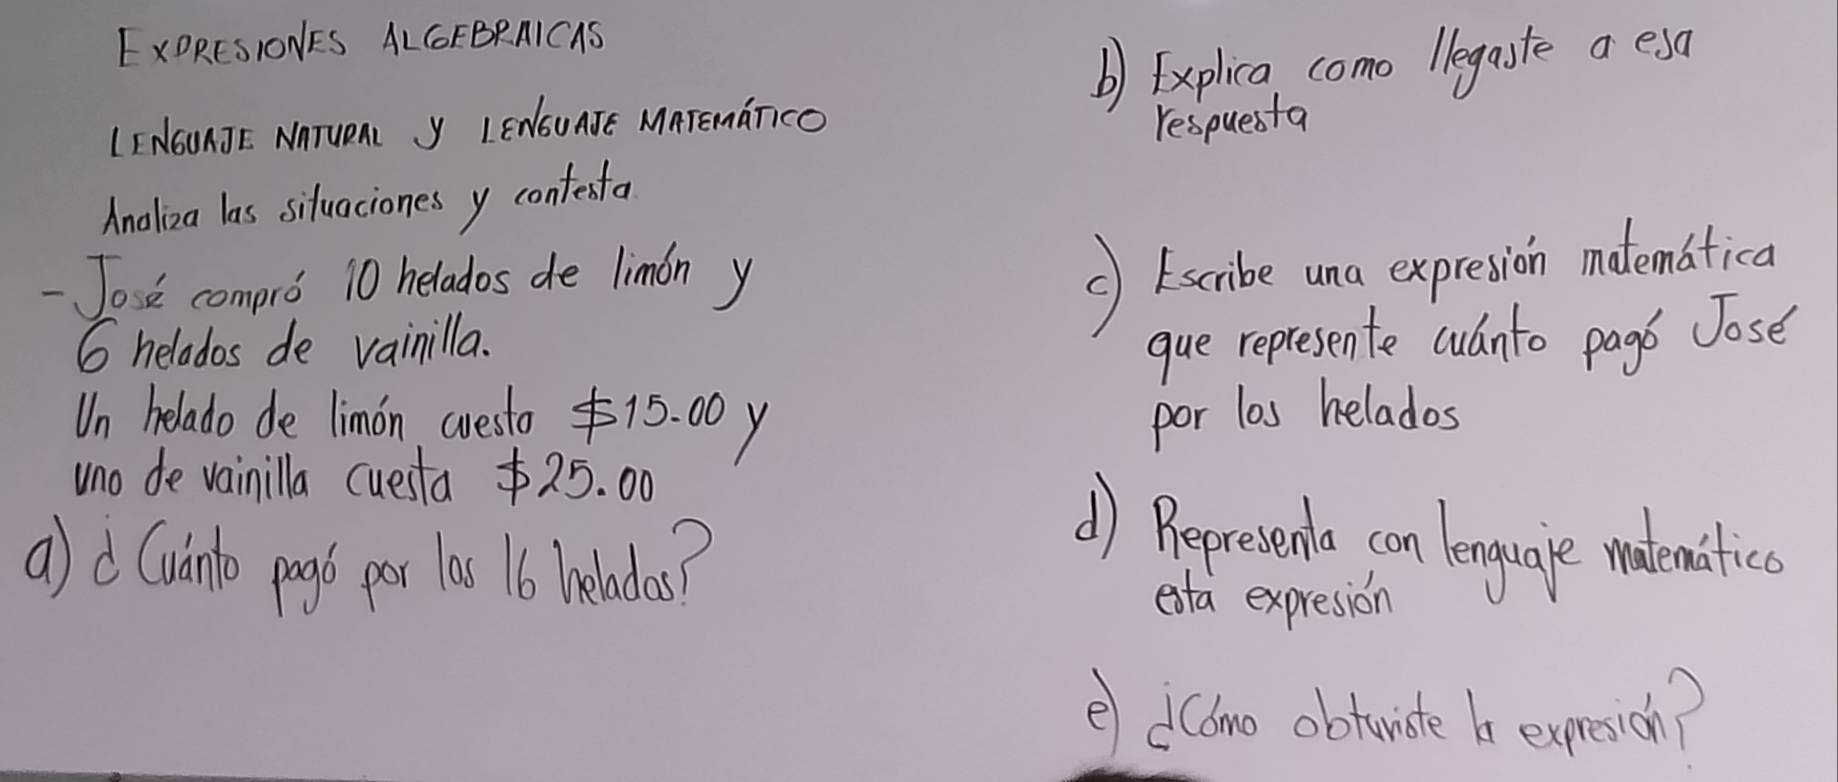 EXPRESIONES ALGEBRAICAS
LENGUAJE NATURAL Y LENGUAJE MATEMÁTICO
Analiza las situaciones y contesta.
- José compró 10 helados de limón y
6 helados de vainilla.
Un helado de limón cuesta $15.00 y
uno de vainilla cuesta $25.00
a) ¿Cuánto pagó por los 16 helados?
b) Explica como llegaste a esa
respuesta
c) Escribe una expresión matemática
que represente cuánto pagó José
por los helados
d) Representa con lenguaje matemático
esta expresión
e) ¿Cómo obtuviste la expresión?